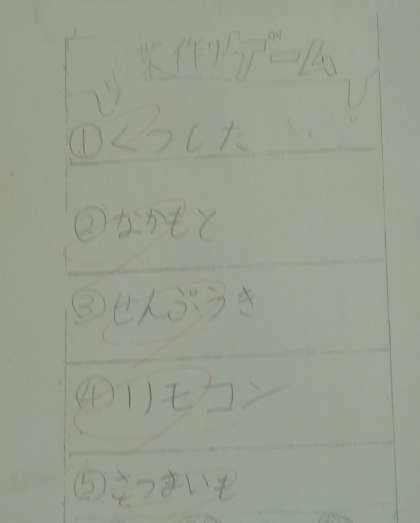 米作りゲーム
①くつした
②なかもと
③せんぷうき
④リモコン
⑤さつまいも